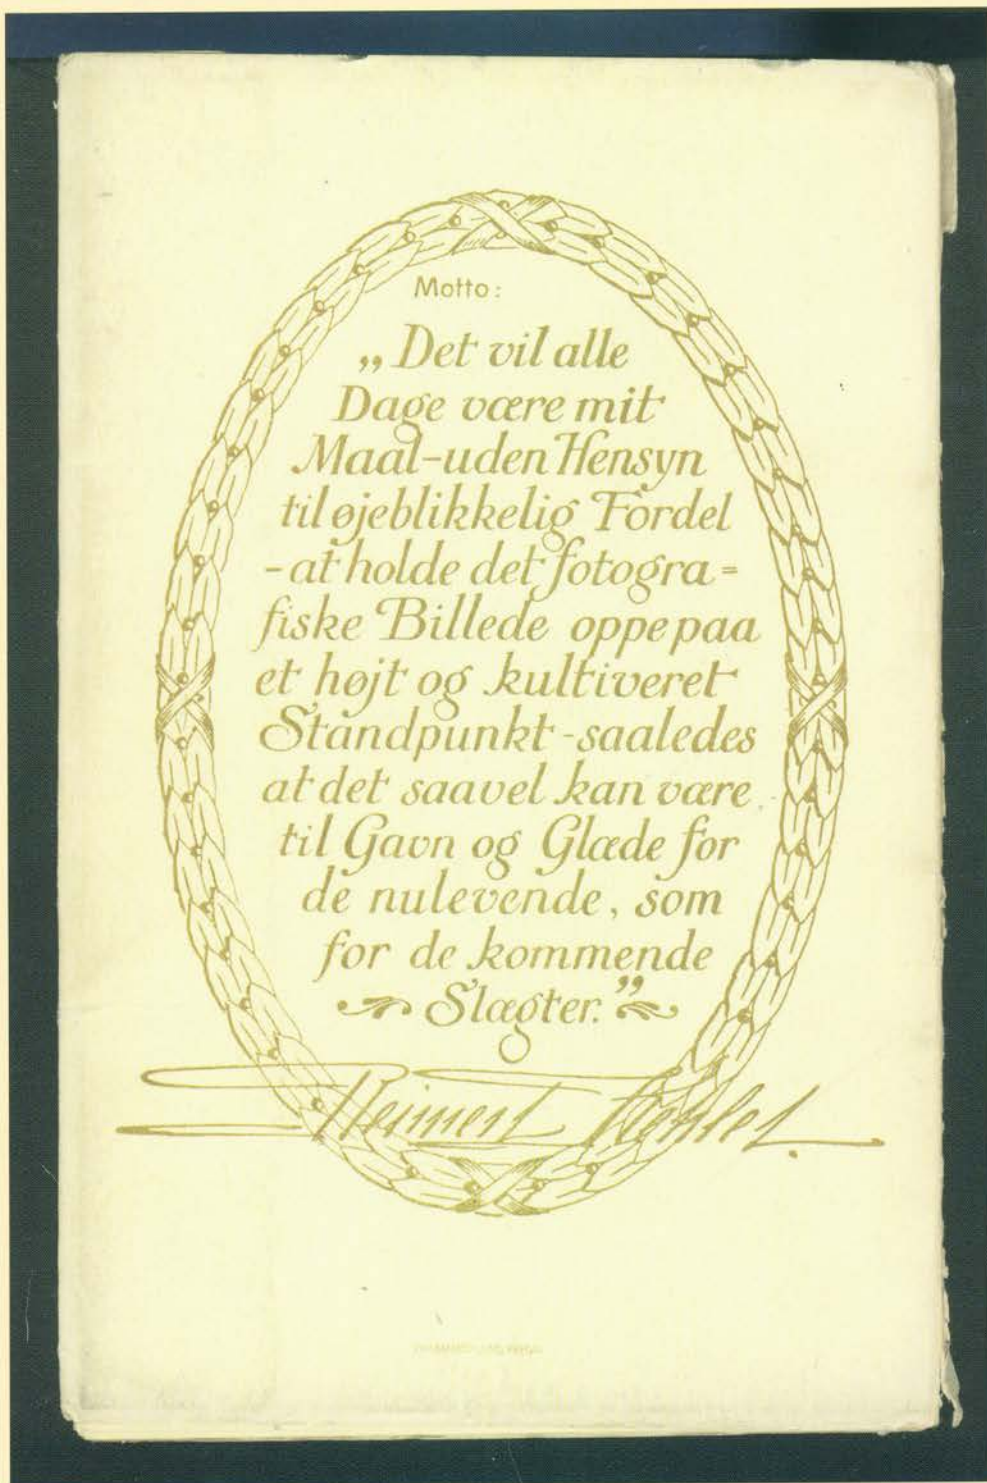 Motto:
„Det vil alle
Dage være mit
Maal-uden Hensyn
til øjeblikkelig Fordel
-at holde det fotogra=
fiske Billede oppe paa
et højt og kultiveret
Standpunkt-saaledes
at det saavel kan være
til Gavn og Glæde for
de nulevende, som
for de kommende
Slægter.”
Reimert Kehlet.